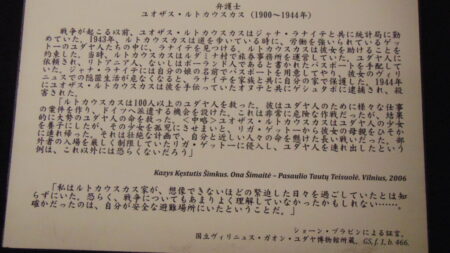 弁護士
ユオザス・ルトカウスカス（1900〜1944年）
戦争が起こる以前、ユオザス・ルトカウスカスはジャナ・ラナイテと共に統計局に勤
めていた。1943年、ルトカウスカスは道を歩いている時に、労働を強いられているゲッ
トーのユダヤ人たちの中に、ラナイテを見つける。ルトカウスカスは彼女を助けることを
約束した。当時、ルトカウスカスはルダミナ村で旅券事務所を運営していた。ユダヤ人に
依頼され、リトアニア人、ないしはポーランド人であると書かれたパスポートを手配して
いた。ジャナ・ラナイテには自分の娘の名前でパスポートを用意してやり、彼女のヴィリ
ニュスでの隠匿生活が始まる。さらに、ラナイテを家族と共に自分の家で保護した。1944年
にユオザス・ルトカウスカスは彼を手伝っていたオナテと共にゲシュタポに逮捕され、殺
害された。
「ルトカウスカスは100人以上のユダヤ人を救った。彼はユダヤ人のために様々な仕事
の案件を作り、ドイツへ派遣する機会を設けた。これは非常に危険な作戦だったが、結果
的に大勢のユダヤ人の命を救った。＜中略＞ユオザス・ルトカウスカスはユダヤ人の少女
を養子にしたが、その少女を孤児にさせまいと、リガ・ゲットーから彼女の母親をひそか
に連れ帰った。それは壮絶な計画で、自分と近しい人々の命を懸けた長い戦いだった。部
外者の入場を厳しく制限していたリガ・ゲットーに侵入し、ユダヤ人を連れ出したという
例は、これ以外には恐らくないだろう」
Kazys Kęstutis Šimkus. Ona Šimaitė – Pasaulio Tautų Teisuolė. Vilnius, 2006
「私はルトカウスカス家が、想像できないほどの緊迫した日々を過ごしていたとは知
らずにいた。恐らく、戦争についてもあまりよく理解していなかったかもしれない……。
確かだったのは、自分が安全な避難場所にいたということだ。」
ショーン・ブラビンによる証言。
国立ヴィリニュス・ガオン・ユダヤ博物館所蔵。GS, f. 1, b. 466.